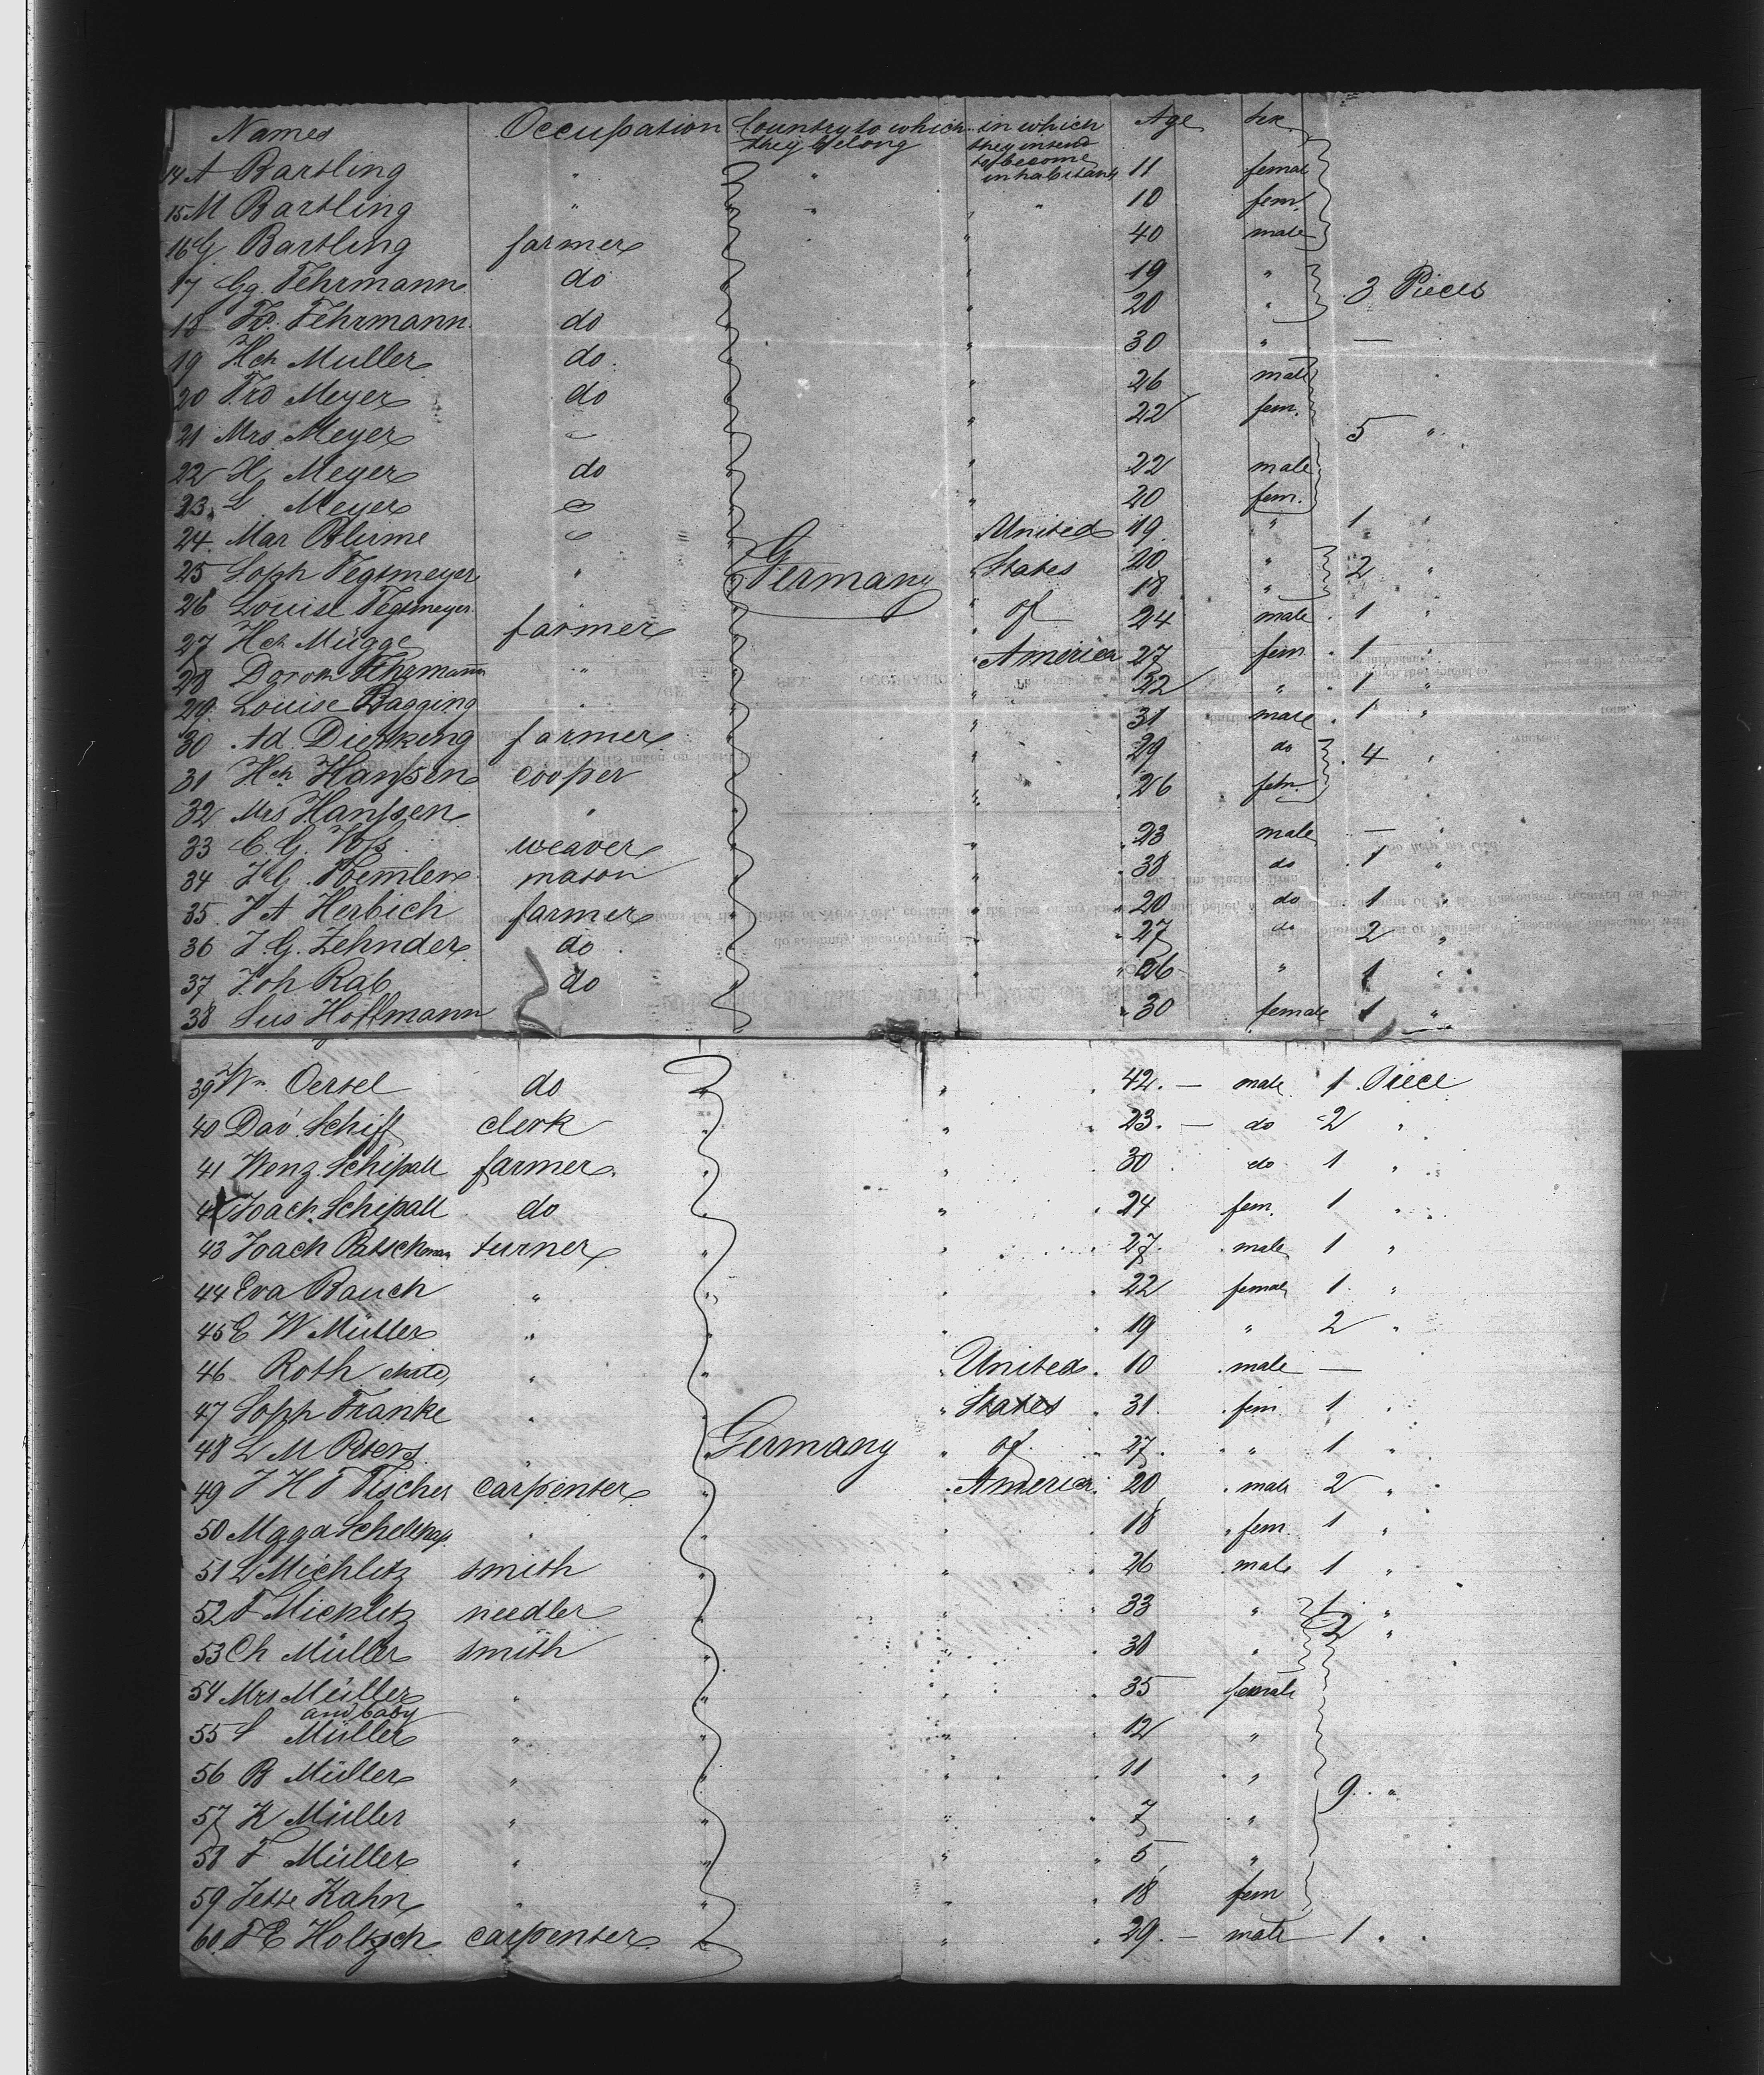 Names Occupation Country to which they belong in which they intend to become inhabitants Age Sex
14 A Bartling " " 11 female
15 M Bartling " " " 10 fem.
16 G Bartling farmer " 40 male
17 Gg. Fehrmann do " 19 " 3 Pieces
18 Fd. Fehrmann do 20 "
19 Hch Muller do. " 30 " —
20 Frd Meyer do " 26 male
21 Mrs Meyer " 22 fem. 5 "
22 H Meyer do " 22 male
23. L Meyer " 20 fem.
24. Mar Blume United 19 " 1 "
25 Soph Tegtmeyer " Germany States 20 " 2 "
26 Louise Tegtmeyer " 18 "
27 Hch Mügge farmer of 24 male 1 "
28 Doroth Fehrmann " America 27 fem 1 "
29. Louise Bagging " " 22 " 1 "
30 Ad. Dierking farmer " 31 male 1 "
31 Hch Hanssen cooper " 29 do 4 "
32 Mrs Hanssen " " 26 fem.
33 C. G. Voss weaver " 23 male — "
34 J G. mason " 38 do 1 "
35. J A Herbich farmer " 20 do 1 "
36 J. G. Zehnder do " 27 do 2 "
37 Joh Rab do " 26 " 1 "
38 Sus Hoffmann " 30 female 1 "
39 Wm Oertel do " 42. — male 1 Piece
40 Dav. Schiff clerk " " 23. — do 2 "
41 Wenz. Schipall farmer " " 30 do 1 "
42 Joach. Schipall do " " 24 fem. 1 "
43 Joach turner " " 27. male 1 "
44 Eva Bauch " " " 22 female 1. "
45 E W Müller " " " 19 " 2 "
46 Roth child, " " United 10 male —
47 Soph Franke " " States 31 fem 1 "
48 L M Peters " Germany " of 27. " 1 "
49 J H F Fischer carpenter " America 20 male 2 "
50 Magd " " " 18 fem. 1 "
51 L Michlitz smith " " 26 male 1 "
52 F Michlitz needler " " 33 " 1 "
53 Ch Müller smith " " 38 " 2 "
54 Mrs Müller " " " 35 female
and baby
55 L Müller " " " 12 "
56 B Müller " " " 11 "
57 K Müller " " " 7 " 9. "
58 F Müller " " " 5 "
59 Jette Kahn " " " 18 fem
60. F E Holtzsch carpenter " " 29. — male 1 "